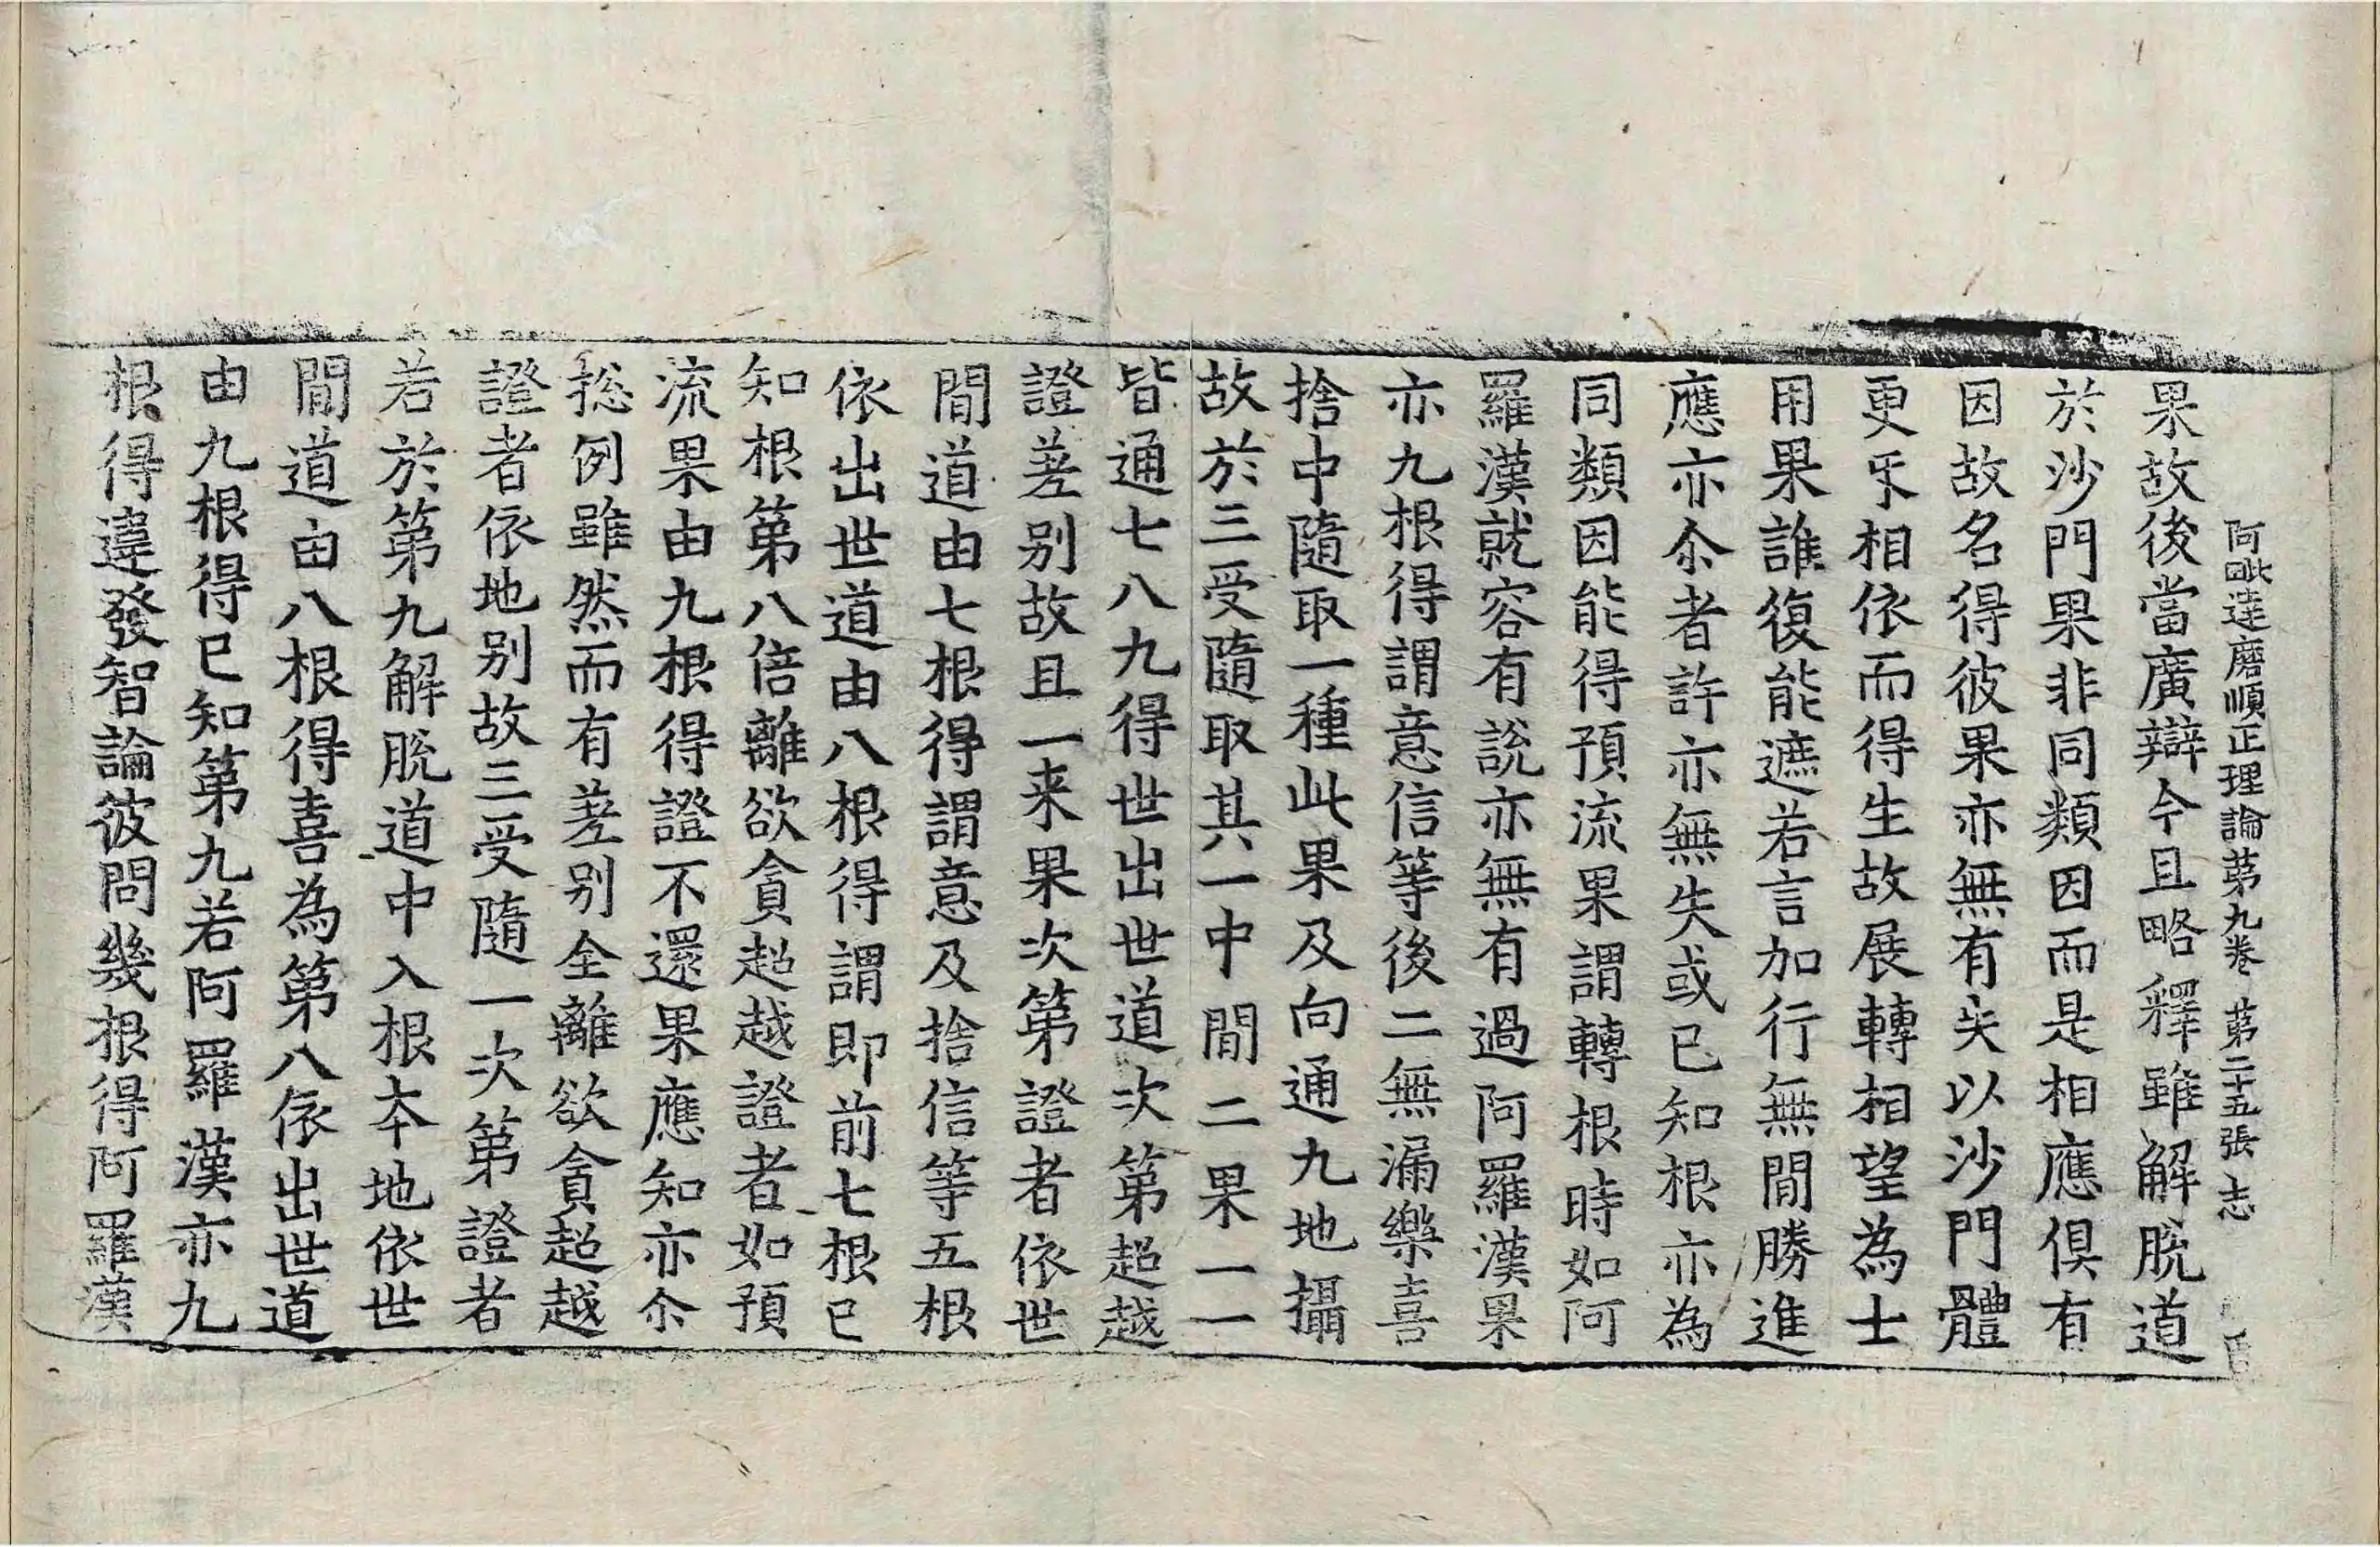 阿毗達磨順正理論第九卷 第二十五張 志
果故後當廣辯今且略釋雖解脫道
於沙門果非同類因而是相應俱有
因故名得彼果亦無有失以沙門體
更㸦相依而得生故展轉相望為士
用果誰復能遮若言加行無間勝進
應亦尒者許亦無失或已知根亦為
同類因能得預流果謂轉根時如阿
羅漢就容有說亦無有過阿羅漢果
亦九根得謂意信等後二無漏樂喜
捨中隨取一種此果及向通九地攝
故於三受隨取其一中間二果一一
皆通七八九得世出世道次第超越
證差別故且一来果次第證者依世
間道由七根得謂意及捨信等五根
依出世道由八根得謂即前七根已
知根第八倍離欲貪超越證者如預
流果由九根得證不還果應知亦尒
捴例雖然而有差別全離欲貪超越
證者依地別故三受隨一次第證者
若於第九解脫道中入根本地依世
間道由八根得喜為第八依出世道
由九根得已知第九若阿羅漢亦九
根得違發智論彼問幾根得阿羅漢